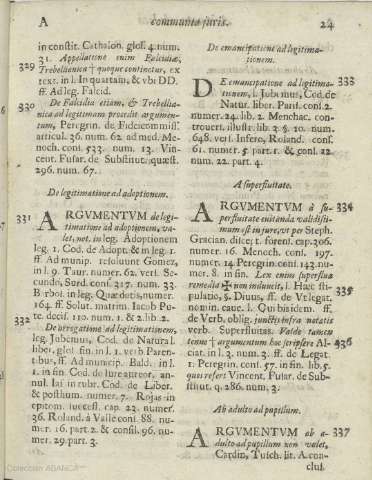 A communta juris. 24
in constit. Cathalon. glos. 4. num.
31. Appellatione enim Falcidiæ,
329 Trebellianica † quoque continetur, ex
text. in l. In quartam, & ubi DD.
ff. Ad leg. Falcid.
330 De Falcidia etiam, & Trebellia-
nica ad legitimam procedit argumen-
tum, Peregrin. de Fideicommiss.
articul. 36. num. 62. ad med. Me-
noch. cons. 533. num. 13. Vin-
cent. Fusar. de Substitut. quæst.
296. num. 67.
De legitimatione ad adoptionem.
331 ARGVMENTVM de legi-
timatione ad adoptionem, va-
let, not. in leg. Adoptionem
leg. 1. Cod. de Adopt. & in leg. 1.
ff. Ad munip. resoluunt Gomez,
in l. 9. Taur. numer. 62. vers. Se-
cundo, Surd. cons. 317. num. 33.
Barbos. in leg. Quæ dotis, numer.
164. ff. Solut. matrim. Iacob Pu-
te. decis. 110. num. 1. & 2. lib. 2.
332 De arrogatione ad legitimationem,
leg. Jubemus, Cod. de Natural.
liber. glos. fin. in l. 1. verb. Paren-
tibus, ff. Ad municip. Bald. in l.
1. in fin. Cod. de iure aureor. an-
nul. Iai in rubr. Cod. de Liber.
& posthum. numer. 7. Rojas in
epitom. success. cap. 22. numer.
36. Roland. à Valle cons. 88. nu-
mer. 16. part. 2. & consil. 96. nu-
mer. 29. part. 3.
De emancipatione ad legitima-
tionem.
DE emancipatione ad legitima- 333
tionem, l. Jubemus, Cod. de
Natur. liber. Paris. cons. 2.
numer. 24. lib. 2. Menchac. con-
trouers. illustr. lib. 3. §. 10. num.
648. vers. Infero, Roland. cons.
61. numer. 5. part. 1. & cons. 22.
num. 22. part. 4.
A superfluitate.
ARGVMENTVM à su- 334
perfluitate euitanda validissi-
mum est in jure, ut per Steph.
Gracian. discept. forens. cap. 306.
numer. 16. Menoch. cons. 197.
numer. 14. Peregrin. cons. 143. nu-
mer. 8. in fin. Lex enim superflua
remedia ✠ non inducit, l. Hæc sti-
pulatio, §. Diuus, ff. de Vt legat. 335
nom. caue. l. Qui bis idem. ff.
de Verb. oblig. junctis infra notatis
verb. Superfluitas. Valde tamen
tenue † argumentum hoc scripsere Al- 336
ciat. in l. 3. num. 3. ff. de Legat.
1. Peregrin. cons. 57. in fin. lib. 5.
quos refert Vincent. Fusar. de Sub-
stitut. q. 286. num. 3.
Ab adulto ad pupillum.
ARGVMENTVM ab a- 337
dulto ad pupillum non valet,
Cardin. Tusch. lit. A. con-
clus.
Colección ABANCA